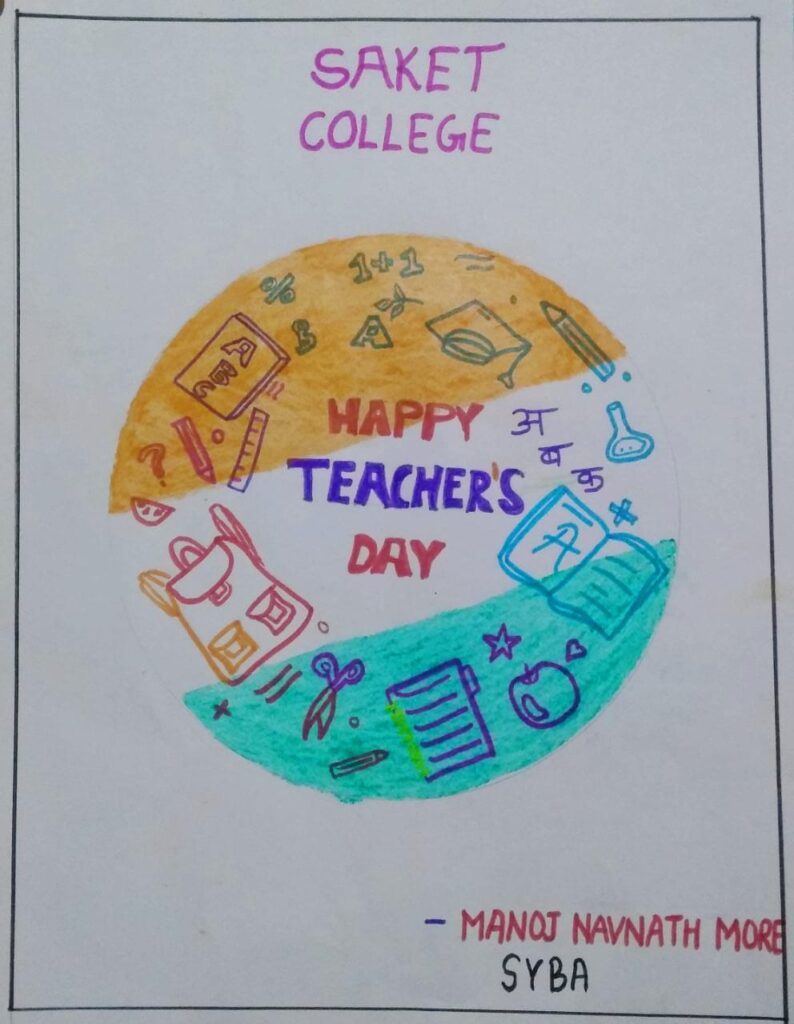 SAKET
COLLEGE
1+1 =
%
B A
A
B
C
?
HAPPY
TEACHER'S
DAY
अ
ब
क
A
- MANOJ NAVNATH MORE
SYBA